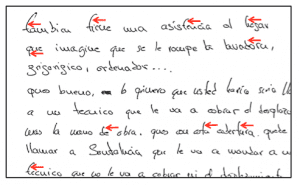 también tiene una asistencia al hogar
que imagine que se le rompe la lavadora,
frigorífico, ordenador....
pues bueno, lo primero que usted haria seria ll
a un tecnico que le va a cobrar el despla
mas la mano de obra, pues con esta cobertura, puede
llamar a que le va a mandar a un
tecnico que no le va a cobrar ni el desplazamiento